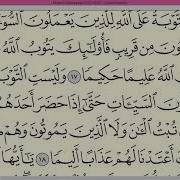 التَّوْبَةُ عَلَى اللَّهِ لِلَّذِينَ يَعْمَلُونَ السُّوٓءَ
مِن قَرِيبٍ فَأُو۟لَٰٓئِكَ يَتُوبُ اللَّهُ
اللَّهُ عَلِيمًا حَكِيمًا ١٧ وَلَيْسَتِ التَّوْبَةُ
السَّيِّـَٔاتِ حَتَّىٰٓ إِذَا حَضَرَ أَحَدَهُمُ
تُبْتُ الْـَٰٔنَ وَلَا الَّذِينَ يَمُوتُونَ وَهُمْ
أَعْتَدْنَا لَهُمْ عَذَابًا أَلِيمًا ١٨ يَٰٓأَيُّهَا